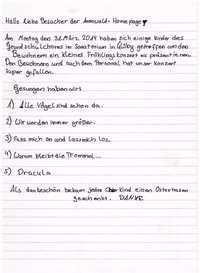 Hallo liebe Besucher der Annwald-Homepage!
Am Montag den 31. März 2014 haben sich einige Kinder des
Grundschulchores im Sanatorium in getroffen um den
Bewohnern ein kleines Frühlingskonzert zu präsentieren.
Den Bewohnern und auch dem Personal hat unser Konzert
super gefallen.
Gesungen haben wir:
1) Alle Vögel sind schon da.
2) Wir werden immer größer.
3) Fass mich an und lass mich los.
4) Warum bleibt die Trommel...
5) Dracula
Als dankeschön bekam jedes Chorkind einen Osterhasen
geschenkt. DANKE